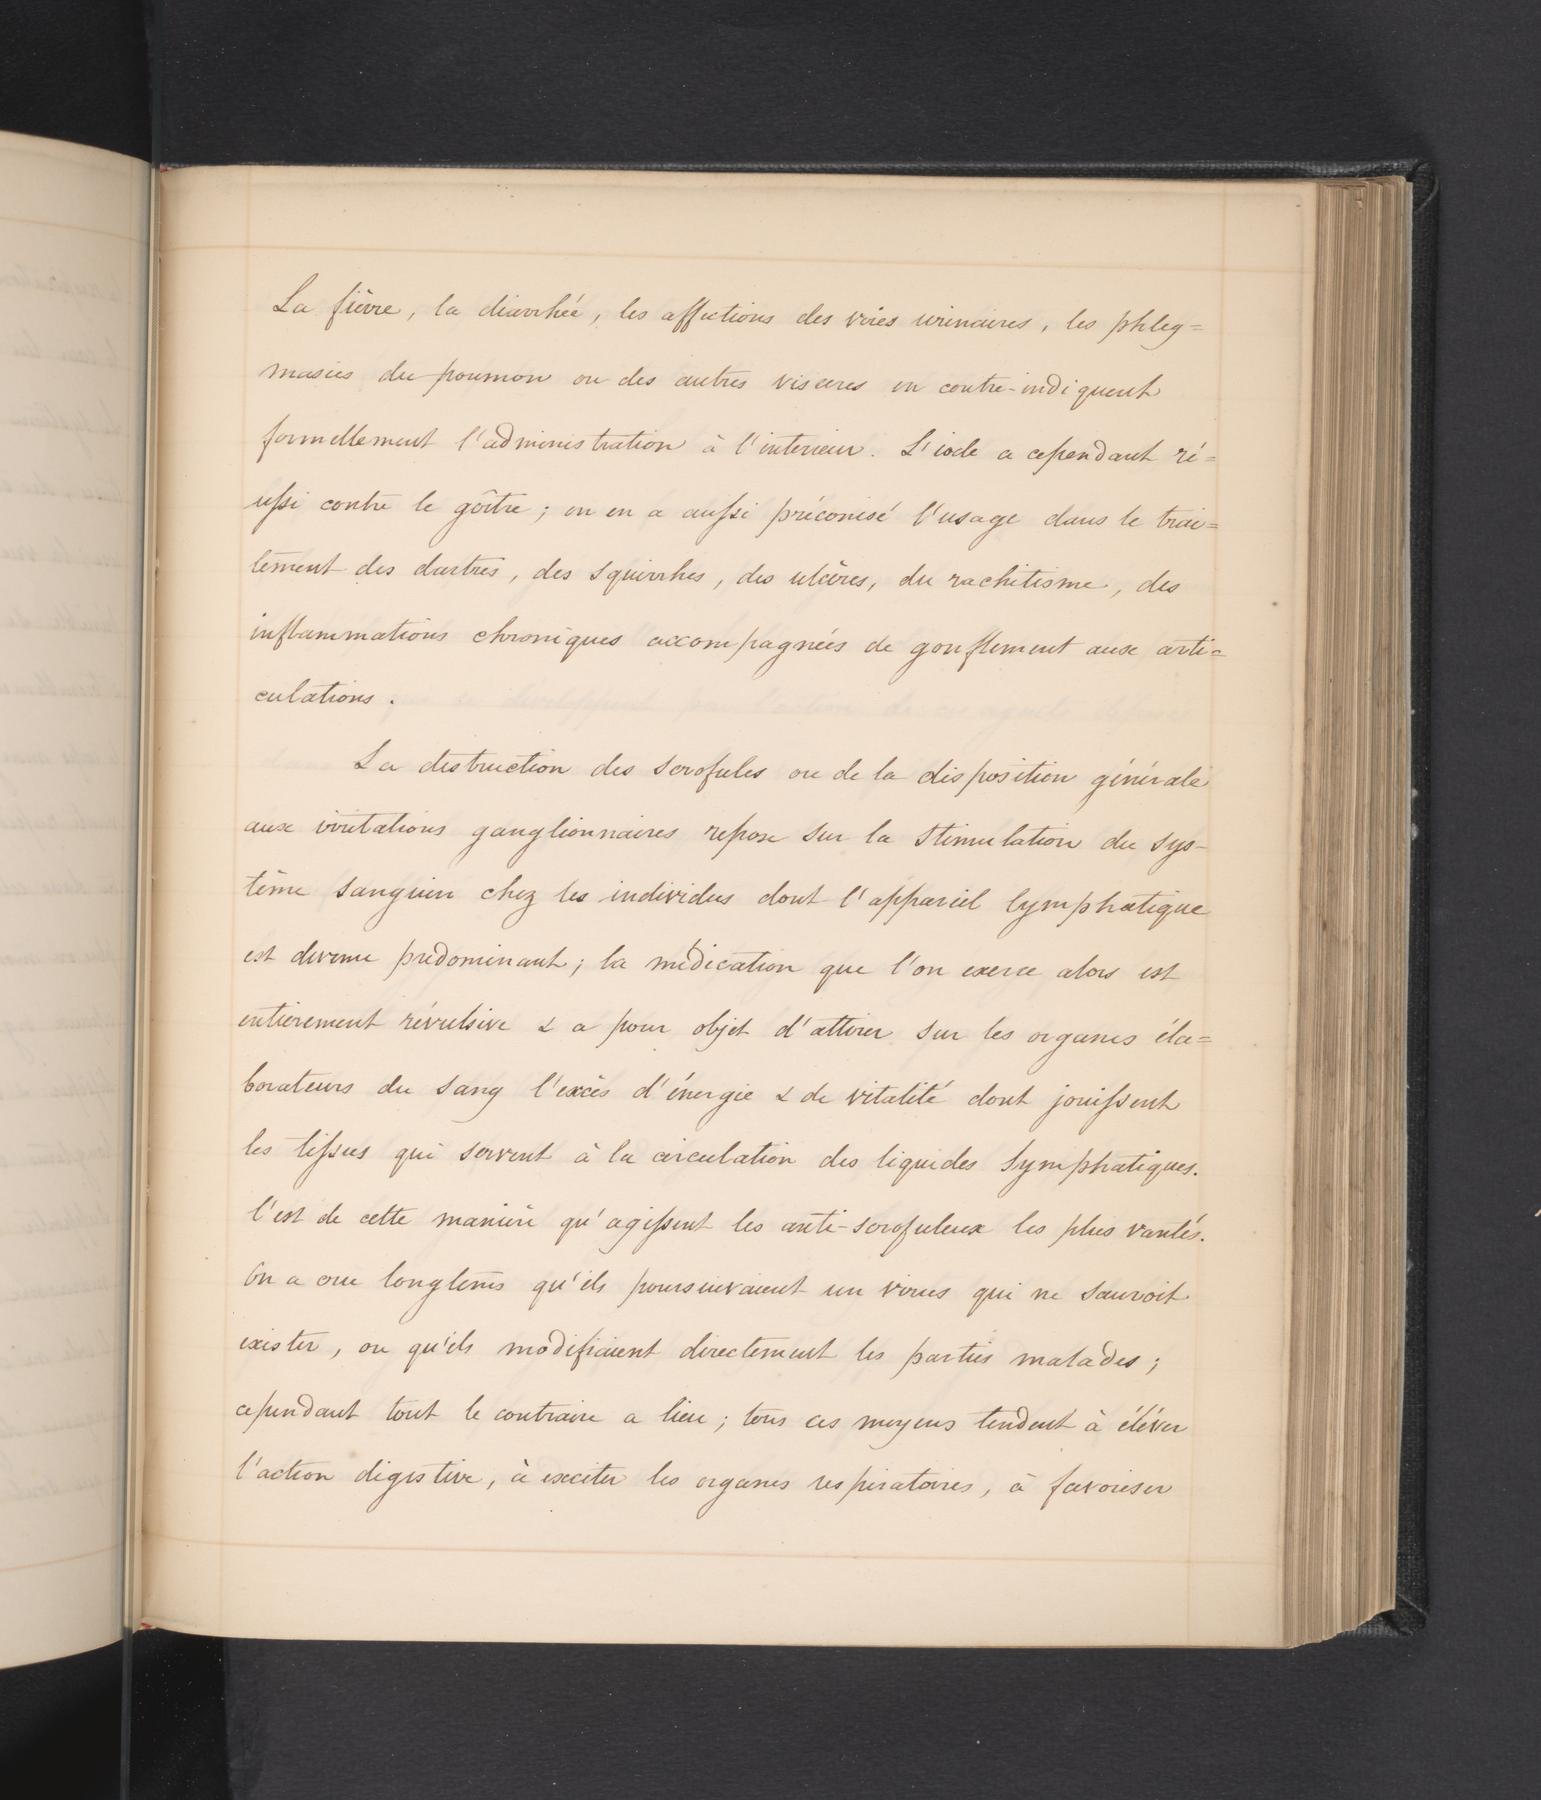 La fièvre, la diarrhée, les affections des voies urinaires, les phleg=
masies du poumon ou des autres visceres en contre-indiquent
formellement l'administration à l'interieur. L'iode a cependant ré=
ussi contre le goître; on en a aussi préconisé l'usage dans le trai=
tement des dartres, des squirrhes, des ulcères, du rachitisme, des
inflammations chroniques accompagnées de gonflement aux arti=
culations.
La destruction des scrofules ou de la disposition générale
aux irritations ganglionnaires repose sur la stimulation du sys-
tême sanguin chez les individus dont l'appareil lymphatique
est devenu prédominant; la médication que l'on exerce alors est
entièrement révulsive & a pour objet d'attirer sur les organes éla=
borateurs du sang l'excès d'énergie & de vitalité dont jouissent
les tissus qui servent à la circulation des liquides lymphatiques.
C'est de cette manière qu'agissent les anti-scrofuleux les plus vantés.
On a cru longtems qu'ils poursuivaient un virus qui ne sauroit
exister, ou qu'ils modifiaient directement les parties malades;
cependant tout le contraire a lieu; tous ces moyens tendent à éléver
l'action digestive, à exciter les organes respiratoires, à favoriser